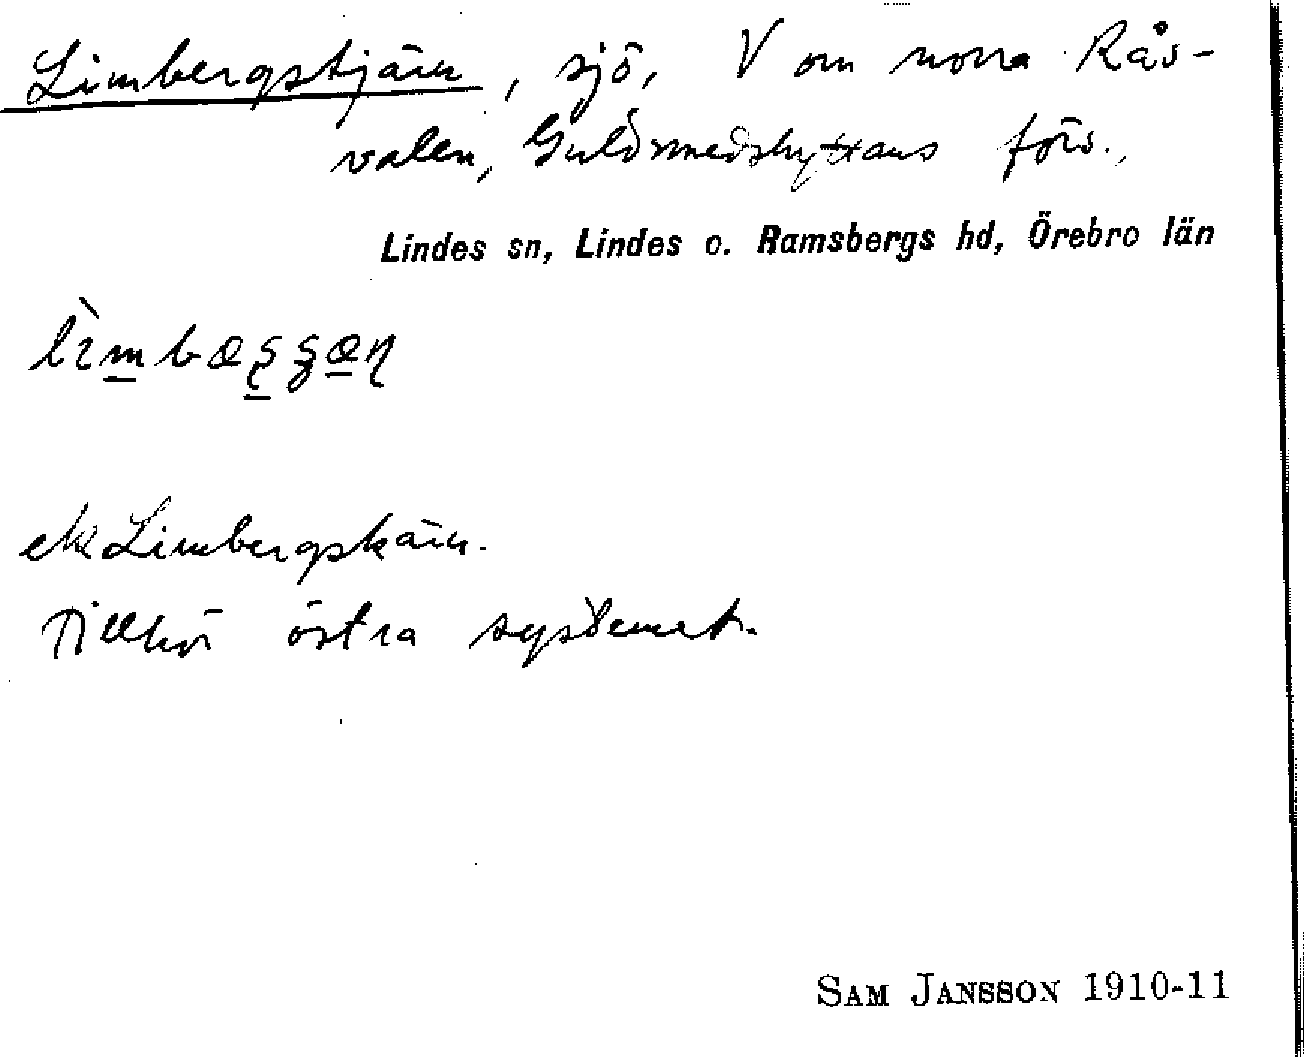 Limbergstjärn, sjö, V om norra Rås-
valen, Guldsmedshyttans förs.,
Lindes sn, Lindes o. Ramsbergs hd, Örebro län
ek Limbergskärn.
Tillhör östra systemet.
SAM JANSSON 1910-11